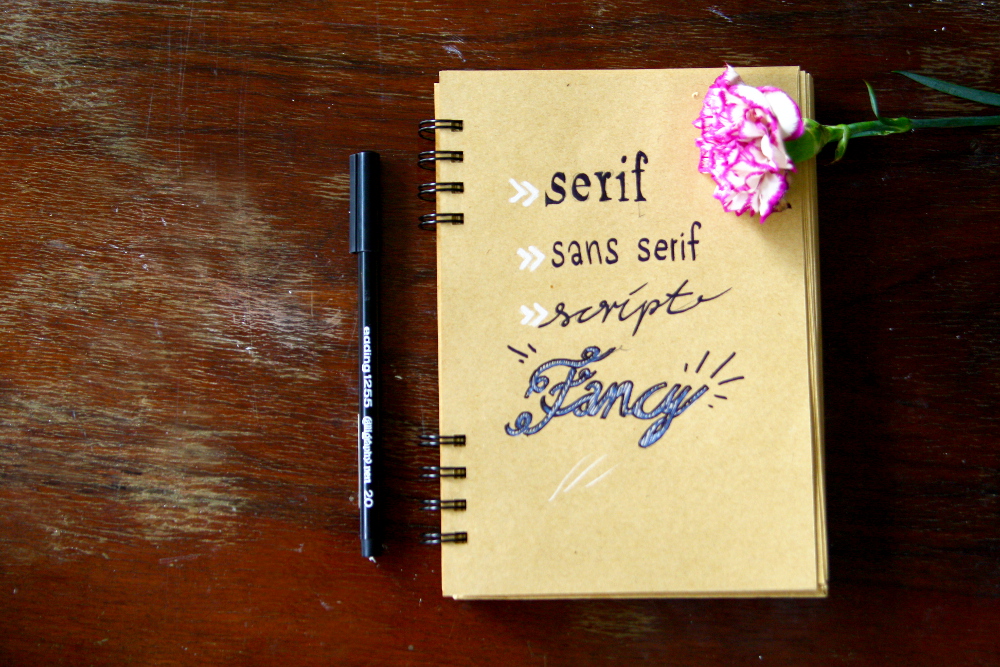 serif
sans serif
scripte
Fancy
edding 1255 calligraphy pen 20